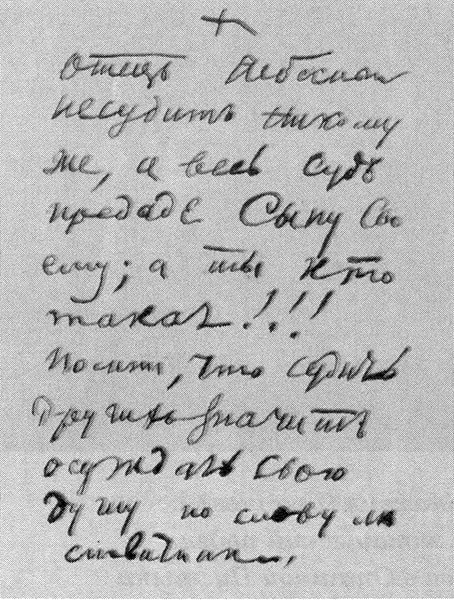 +
Отецъ Небесный
несудитъ никому
же, а весь судъ
предаде Сыну Сво
ему; а ты кто
такая!!!
Помни, что судить
других значитъ
осуждать свою
душу по слову ли
ствичник